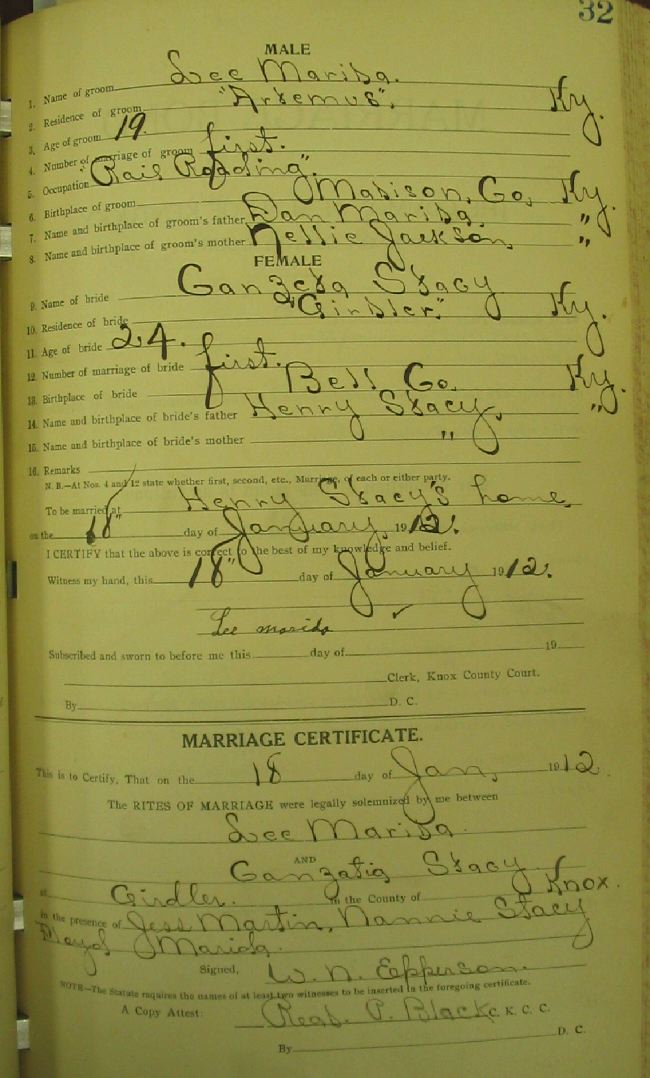 32
MALE
1. Name of groom Lee Marida.
2. Residence of groom "Artemus". Ky.
3. Age of groom 19.
4. Number of marriage of groom first.
5. Occupation "Rail Roading".
6. Birthplace of groom Madison, Co, Ky.
7. Name and birthplace of groom's father Dan Marida, "
8. Name and birthplace of groom's mother Nellie Jackson, "
FEMALE
9. Name of bride Ganzeta Stacy
10. Residence of bride "Girdler." Ky.
11. Age of bride 24.
12. Number of marriage of bride first.
13. Birthplace of bride Bell Co, Ky.
14. Name and birthplace of bride's father Henry Stacy, "
15. Name and birthplace of bride's mother "
16. Remarks
N. B.—At Nos. 4 and 12 state whether first, second, etc., Marriage, of each or either party.
To be married at Henry Stacy's home,
on the 18" day of January, 1912.
I CERTIFY that the above is correct to the best of my knowledge and belief.
Witness my hand, this 18" day of January 1912.
Lee marida
Subscribed and sworn to before me this day of 19
Clerk, Knox County Court.
By D. C.
MARRIAGE CERTIFICATE.
This is to Certify, That on the 18 day of Jan, 1912.
The RITES OF MARRIAGE were legally solemnized by me between
Lee Marida.
AND
Ganzatia Stacy
at Girdler. in the County of Knox.
in the presence of Jess Martin, Nannie Stacy
Marida.
Signed, W. N. Epperson.
NOTE—The Statute requires the names of at least two witnesses to be inserted in the foregoing certificate.
A Copy Attest: P. Black C. K. C. C.
By D. C.